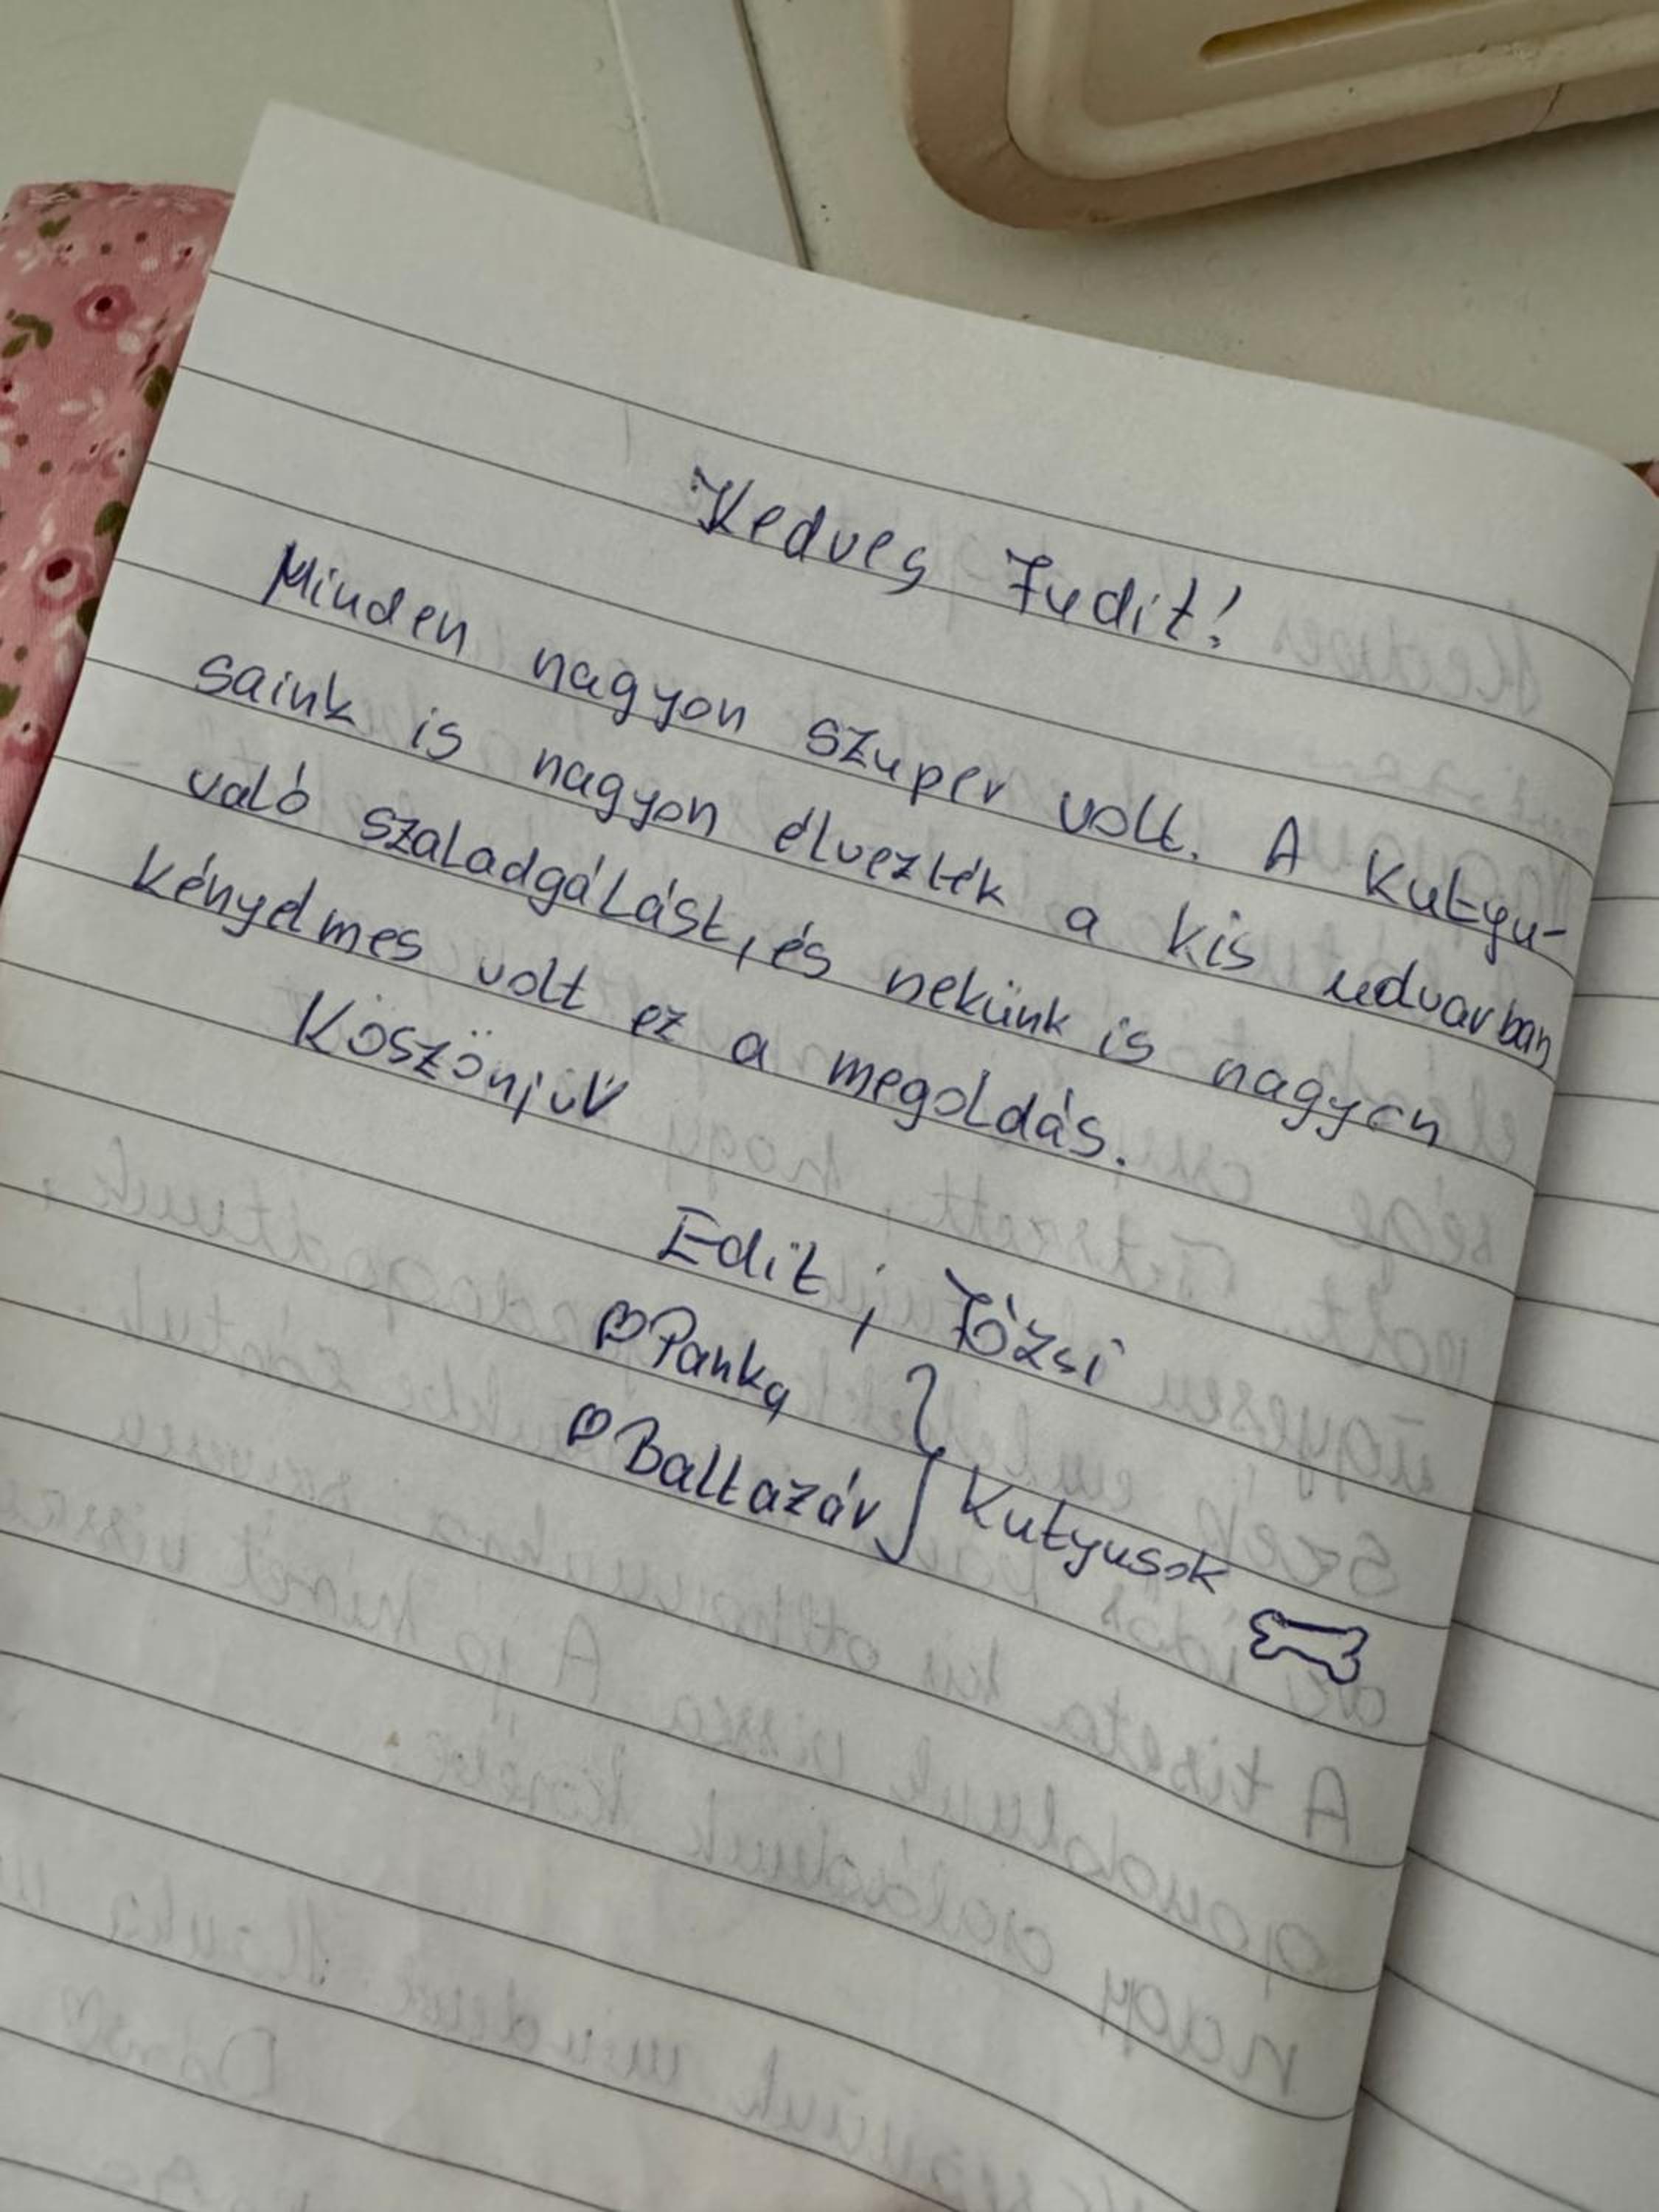 Kedves Judit!
Minden nagyon szuper volt. A kutyu-
saink is nagyon élvezték a kis udvarban
való szaladgálást, és nekünk is nagyon
kényelmes volt ez a megoldás.
Köszönjük
Edit, Józsi
Panka
Baltazár } Kutyusok